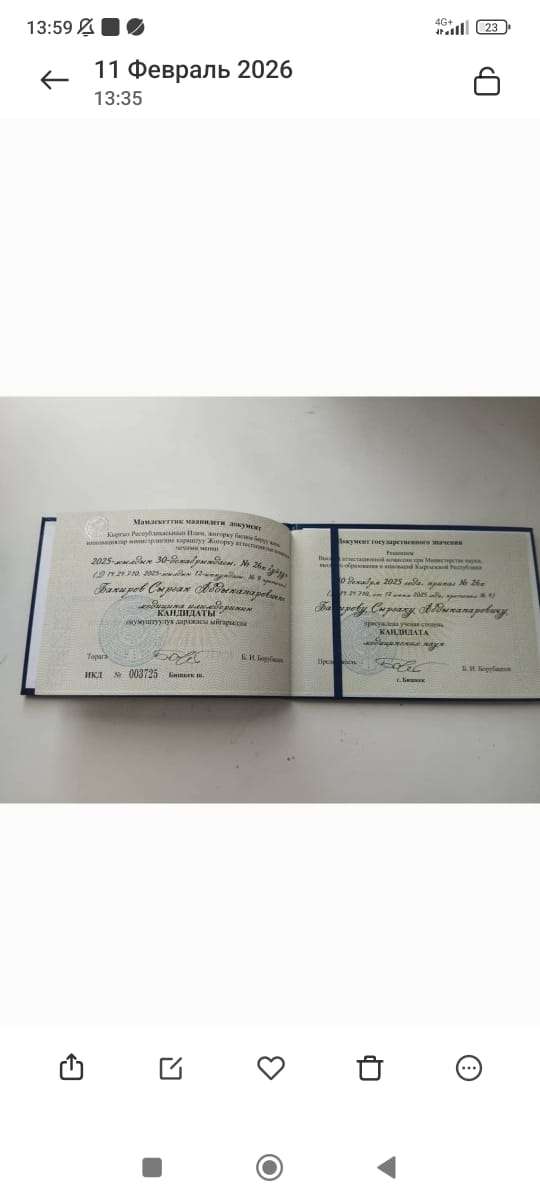 13:59
4G+
23
11 Февраль 2026
13:35
Мамлекеттик маанидеги документ
Кыргыз Республикасынын Илим, жогорку билим берүү жана
инновациялар министрлигине караштуу Жогорку аттестациялык комиссия
2025-жылдын 30-декабрындагы, № 26к
(Д 14.24.710, 2025-жылдын 17-июнундагы, № 9
Бакиров Сыргак Абдыкапаровичке
медицина илимдеринин
КАНДИДАТЫ
окумуштуулук даражасы ыйгарылды
Төрага
Б. И. Борубашов
ИКД № 003725 Бишкек ш.
Документ государственного значения
Решением
аттестационной комиссии при Министерстве науки,
образования и инноваций Кыргызской Республики
30 декабря 2025 года, приказ № 26к
14.24.710, от 17 июня 2025 года, протокол № 9)
Бакирову Сыргаку Абдыкапаровичу
присуждена ученая степень
КАНДИДАТА
медицинских наук
Б. И. Борубашов
г. Бишкек